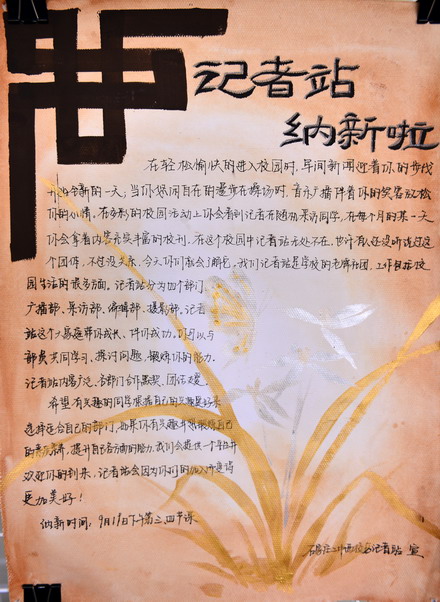 记者站
纳新啦
在轻松愉快的进入校园时,早间新闻迎着你的步伐
开始全新的一天,当你悠闲自在的漫步在操场时,音乐广播伴着你的笑容放松
你的心情。在多彩的校园活动上你会看到记者在随机采访同学,在每个月的某一天
你会拿着内容充实丰富的校刊。在这个校园中记者站无处不在,也许有人还没听说过这
个团体,不过没关系,今天你们就会了解它,我们记者站是学校的老牌社团,工作包括校
园生活的很多方面,记者站分为四个部门
广播部、采访部、编辑部、摄影部、记者
站这个大家庭帮你成长、伴你成功,可以与
部员共同学习、探讨问题、锻炼你的能力。
记者站内容广泛,各部门合作默契,团结友爱。
希望有兴趣的同学根据自己的兴趣爱好来
选择适合自己的部门,如果你有兴趣并想锻炼自己
提升自己各方面的能力,我们会提供一个平台并
欢迎你的到来,记者站会因为你们的加入而变得
更加美好!
纳新时间:9月19日下午第三、四节课
记者站 宣